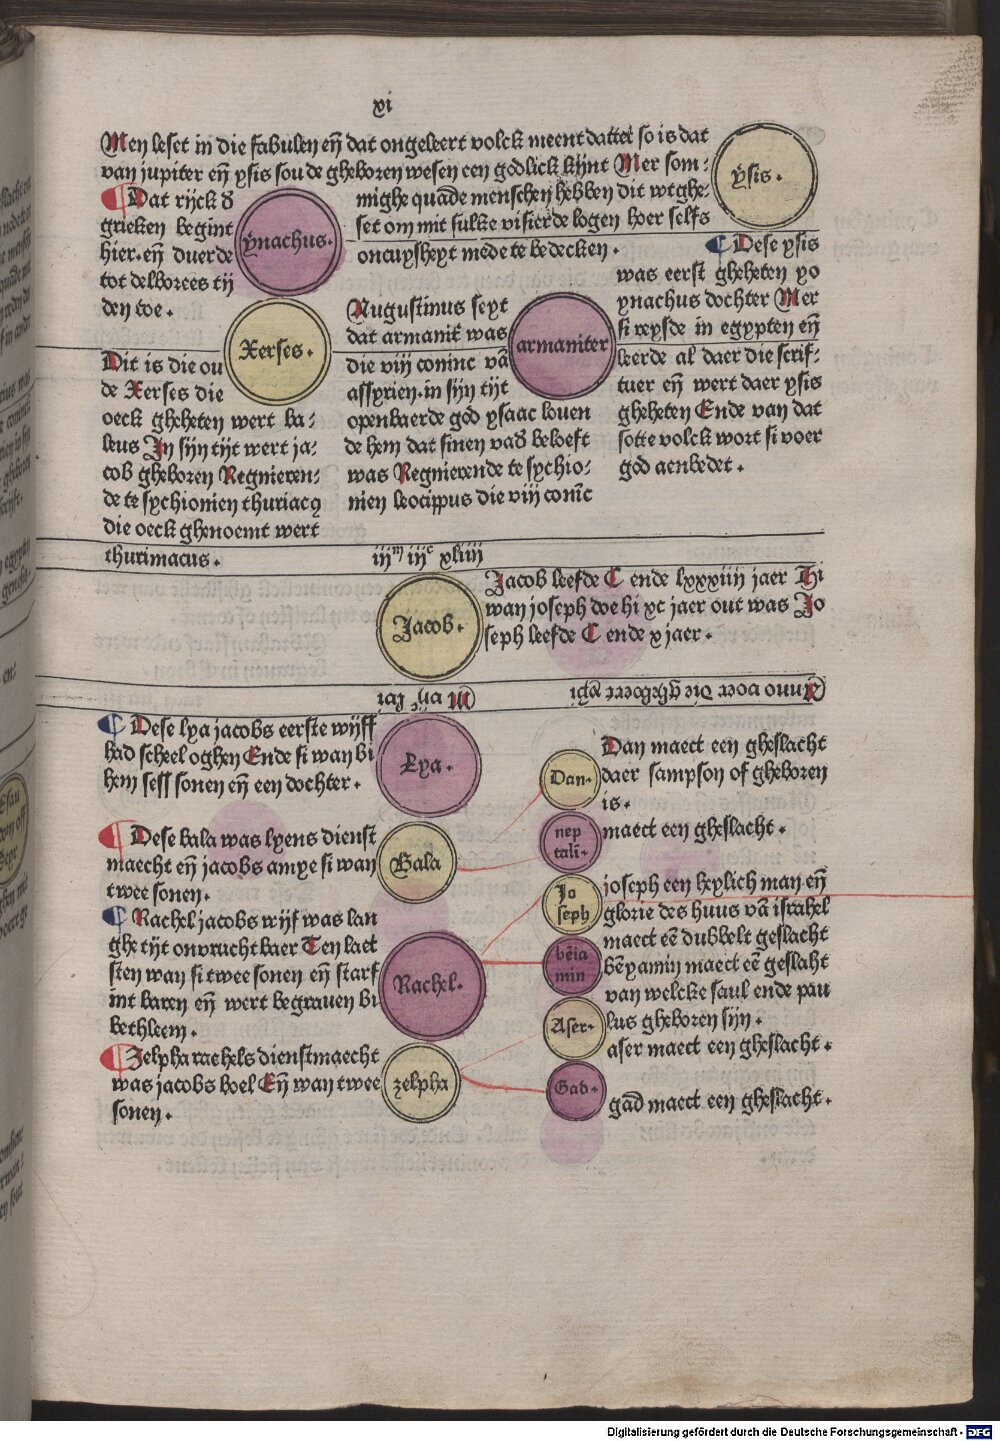 xi
Men leset in die fabulen eñ dat ongeleert volck meent dattet so is dat
van jupiter eñ ysis sou de gheboren wesen een godlick kijnt Mer som:
mighe quade menschen hebben dit wtghe:
set om mit sulke visierde logen hoer selfs
oncuysheyt mede te bedecken.
ysis.
Dat rijck d
grieken begint
hier. eñ duerde
tot delborees tij
den toe.
ynachus.
Xerses.
Dit is die ou
de Xerses die
oeck gheheten wert ba:
leus In sijn tijt wert ja:
cob gheboren Regnieren:
de te sychionien thuriacꝯ
die oeck ghenoemt wert
thurimacus.
Augustinus seyt
dat armanit̄ was
die viij coninc vā
assyrien. in sijn tijt
openbaerde god ysaac louen
de hem dat sinen vad beloeft
was Regnierende te sychio:
nien leocippus die viij conīc
armaniter
Dese ysis
was eerst gheheten yo
ynachus dochter Mer
si reysde in egypten eñ
leerde al daer die scrif:
tuer eñ wert daer ysis
gheheten Ende van dat
sotte volck wort si voer
god aenbedet.
iijᵐ iijᶜ xliiij
Jacob.
Jacob leefde C ende lxxxiiij jaer Hi
wan joseph doe hi xc jaer out was Jo
seph leefde C ende x jaer.
Anno voer die gheboert xpi
Dese lya jacobs eerste wijff
had scheel oghen Ende si wan bi
hem sess sonen eñ een dochter.
Lya.
Dese bala was lyens dienst
maecht eñ jacobs amye si wan
twee sonen.
Bala
Rachel jacobs wijf was lan
ghe tijt onvrucht baer Ten laet
sten wan si twee sonen eñ starf
int baren eñ wert begrauen bi
bethleem.
Rachel.
Zelpha rachels dienstmaecht
was jacobs boel Eñ wan twee
sonen.
zelpha
Dan.
Dan maect een gheslacht
daer sampson of gheboren
is.
nep
tali.
maect een gheslacht.
Jo
seph
joseph een heylich man eñ
glorie des huus vā israhel
maect eē dubbelt geslacht
bēia
min
bēyamin maect eē geslaht
van welcke saul ende pau
lus gheboren sijn.
Aser.
aser maect een gheslacht.
Gad.
gad maect een gheslacht.
Digitalisierung gefördert durch die Deutsche Forschungsgemeinschaft - DFG